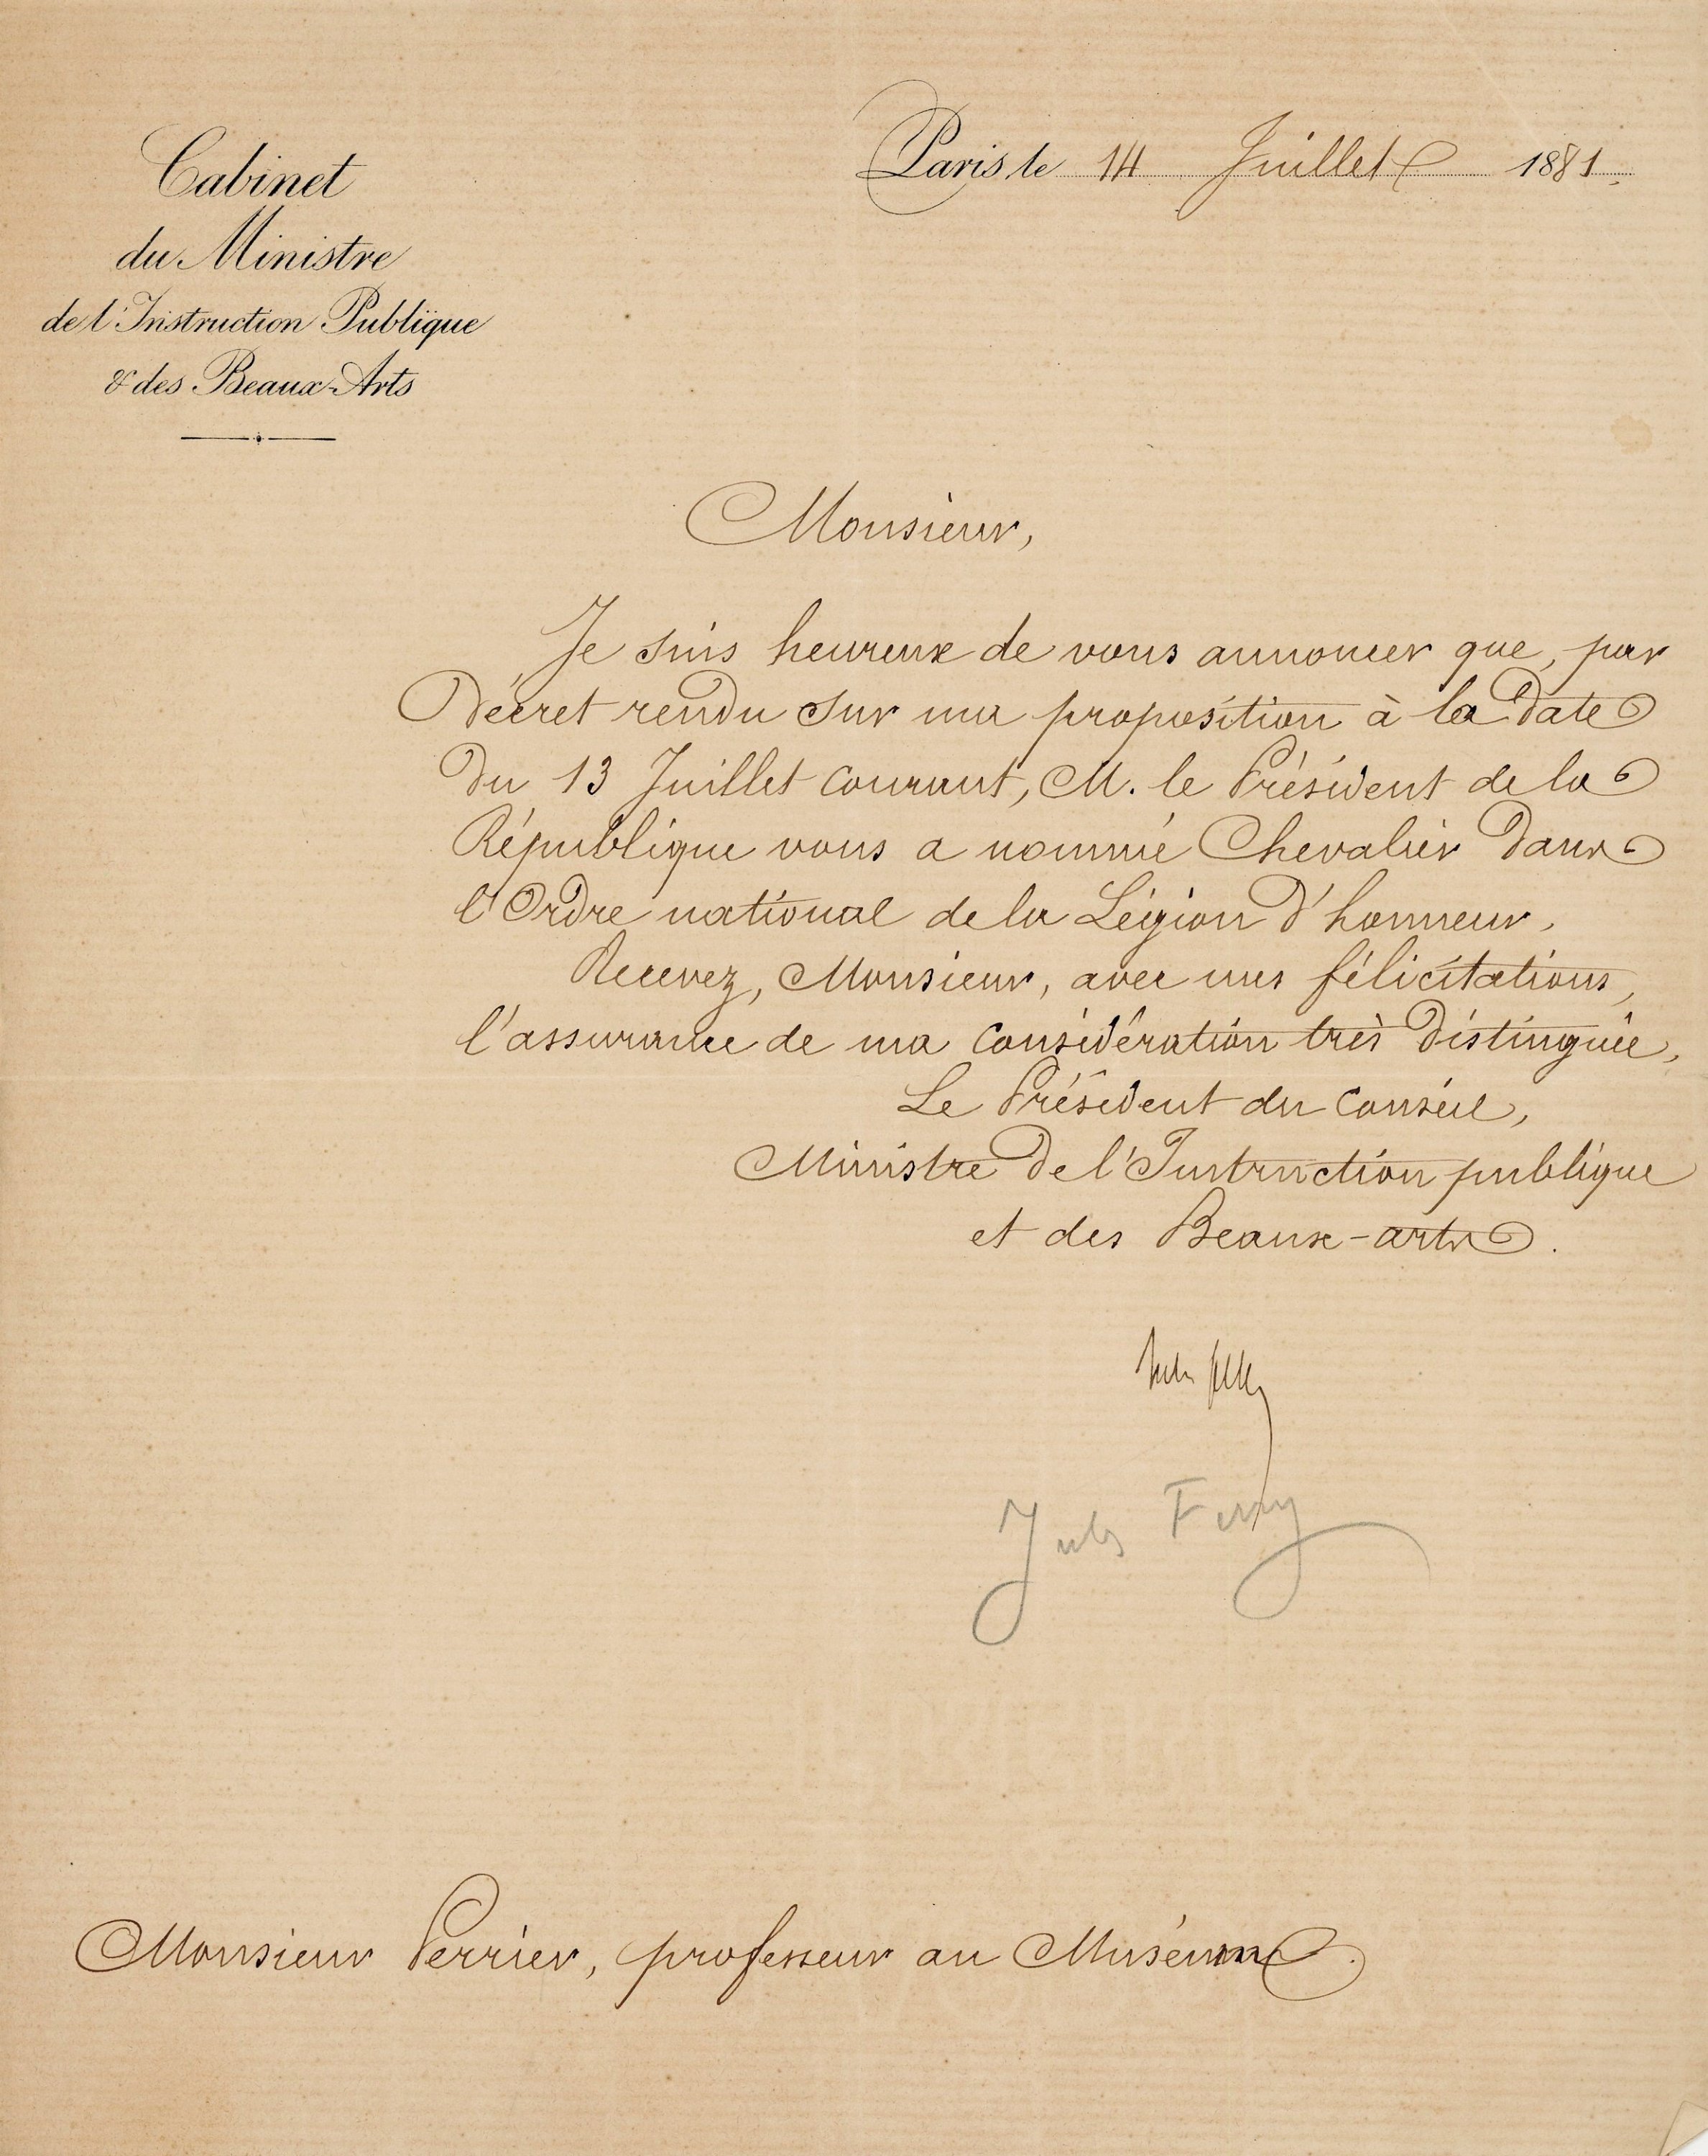 Cabinet
du Ministre
de l'Instruction Publique
& des Beaux-Arts
Paris le 14 Juillet 1881.
Monsieur,
Je suis heureux de vous annoncer que, par
Décret rendu sur ma proposition à la Date
Du 13 Juillet courant, M. le Président de la
République vous a nommé Chevalier Dans
l'Ordre national de la Légion D'honneur.
Recevez, Monsieur, avec mes félicitations,
l'assurance de ma considération très Distinguée.
Le Président du Conseil,
Ministre De l'Instruction publique
et des Beaux-arts.
Jules Ferry
Jules Ferry
Monsieur Perrier, professeur au Muséum.